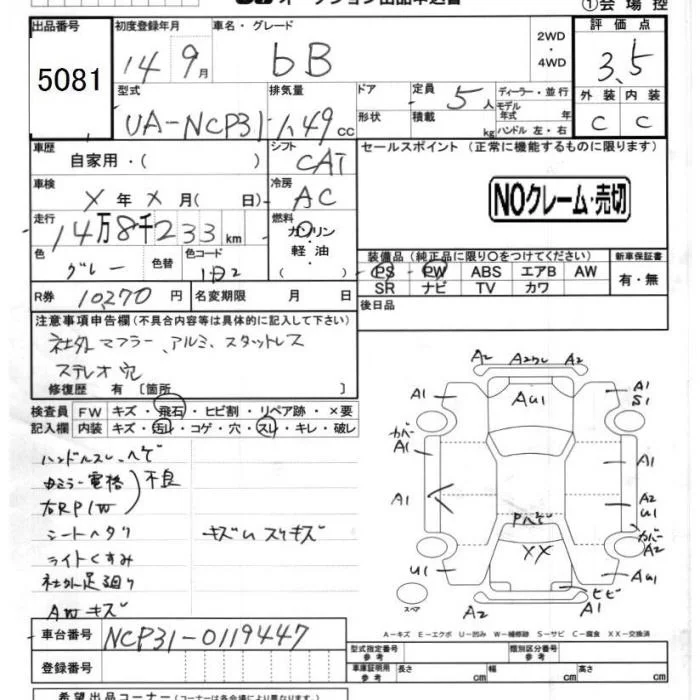 オークション出品申込書
①会場控
出品番号 初度登録年月 車名・グレード 2WD 評価点
5081 14 9月 bB ・4WD 3.5
型式 排気量 ドア 定員 ディーラー・並行 外装 内装
UA-NCP31 1.49cc 5人 モデル年式 年 C C
形状 積載 kg ハンドル 左・右
車歴 シフト セールスポイント (正常に機能するものに限ります)
自家用・( ) CAT
車検 冷房
X年X月( 日) AC
NOクレーム・売切
走行 燃料
14万8千233km ガソリン・軽油・
色 色替 色コード 装備品(純正品に限り○をつけてください) 新車保証書
グレー 1B2 PS PW ABS エアB AW 有・無
SR ナビ TV カワ
R券 10,270円 名変期限 月 日 後日品
注意事項申告欄(不具合内容等は具体的に記入して下さい)
社外マフラー、アルミ、スタットレス
ステレオ穴
修復歴 有【箇所 】
検査員 FW キズ・飛石・ヒビ割・リペア跡・×要
記入欄 内装 キズ・汚レ・コゲ・穴・スレ・キレ・破レ
ハンドルスレ、ヘゲ
カミラー電格
不良
右RP/W
シートヘタリ
キズ凹 スリキズ
ライトくすみ
社外足廻り
AWキズ
A2 A2ワレ A2
A1 AU1 A1
S1
カバー
A1 A1
A1 A2
U1
Pヘゲ カバー
A2
XX
U1 AU1
ヒビ
スペア A2 A1
A-キズ E-エクボ U-凹み W-補修跡 S-サビ C-腐食 XX-交換済
車台番号 NCP31-0119447
型式指定番号 参考 類別区分番号 参考
登録番号 車庫証明用 参考 長さ cm 幅 cm 高さ cm
希望出品コーナー(コーナーは各会場により異なります)